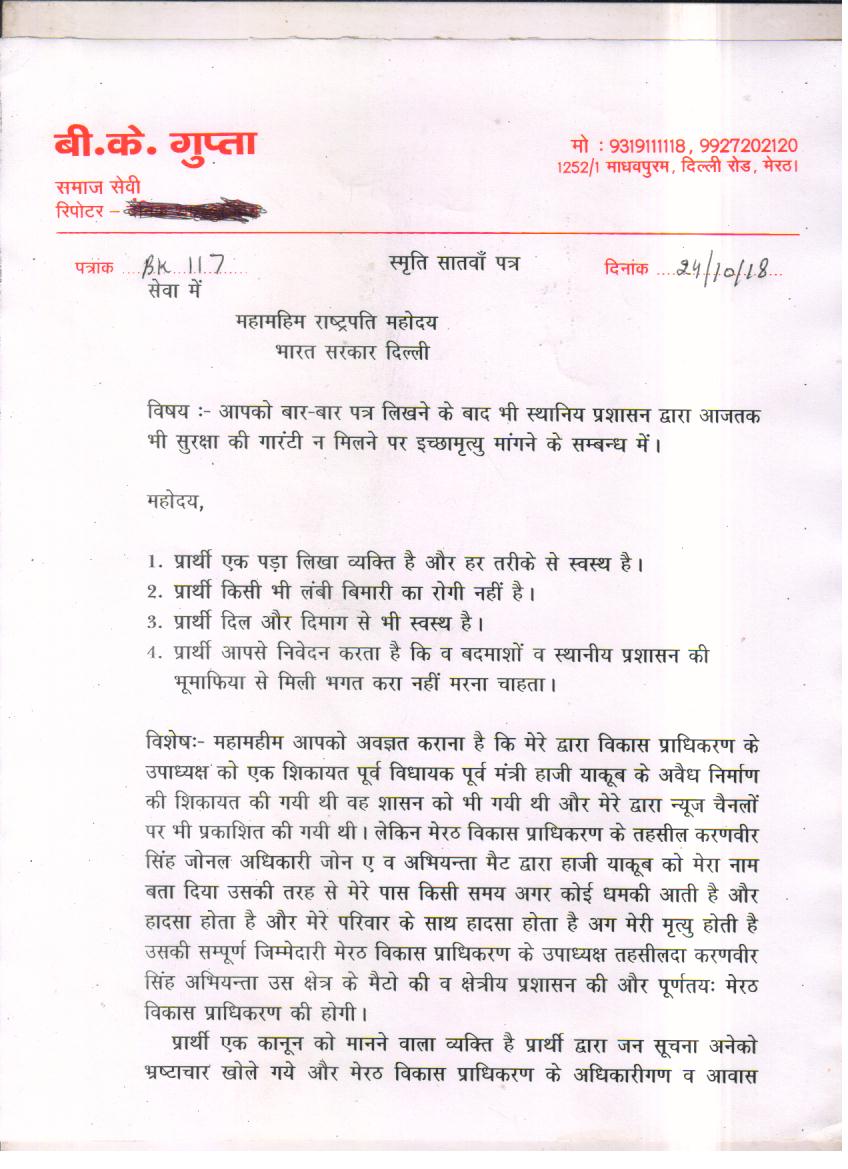 बी.के. गुप्ता
समाज सेवी
रिपोटर –
मो : 9319111118, 9927202120
1252/1 माधवपुरम, दिल्ली रोड, मेरठ।
पत्रांक ....BK 117......
स्मृति सातवाँ पत्र
दिनांक ....24/10/18...
सेवा में
महामहिम राष्ट्रपति महोदय
भारत सरकार दिल्ली
विषय :- आपको बार-बार पत्र लिखने के बाद भी स्थानिय प्रशासन द्वारा आजतक
भी सुरक्षा की गारंटी न मिलने पर इच्छामृत्यु मांगने के सम्बन्ध में।
महोदय,
1. प्रार्थी एक पड़ा लिखा व्यक्ति है और हर तरीके से स्वस्थ है।
2. प्रार्थी किसी भी लंबी बिमारी का रोगी नहीं है।
3. प्रार्थी दिल और दिमाग से भी स्वस्थ है।
4. प्रार्थी आपसे निवेदन करता है कि व बदमाशों व स्थानीय प्रशासन की
भूमाफिया से मिली भगत करा नहीं मरना चाहता।
विशेषः- महामहीम आपको अवज्ञत कराना है कि मेरे द्वारा विकास प्राधिकरण के
उपाध्यक्ष को एक शिकायत पूर्व विधायक पूर्व मंत्री हाजी याकूब के अवैध निर्माण
की शिकायत की गयी थी वह शासन को भी गयी थी और मेरे द्वारा न्यूज चैनलों
पर भी प्रकाशित की गयी थी। लेकिन मेरठ विकास प्राधिकरण के तहसील करणवीर
सिंह जोनल अधिकारी जोन ए व अभियन्ता मैट द्वारा हाजी याकूब को मेरा नाम
बता दिया उसकी तरह से मेरे पास किसी समय अगर कोई धमकी आती है और
हादसा होता है और मेरे परिवार के साथ हादसा होता है अग मेरी मृत्यु होती है
उसकी सम्पूर्ण जिम्मेदारी मेरठ विकास प्राधिकरण के उपाध्यक्ष तहसीलदा करणवीर
सिंह अभियन्ता उस क्षेत्र के मैटो की व क्षेत्रीय प्रशासन की और पूर्णतयः मेरठ
विकास प्राधिकरण की होगी।
प्रार्थी एक कानून को मानने वाला व्यक्ति है प्रार्थी द्वारा जन सूचना अनेको
भ्रष्टाचार खोले गये और मेरठ विकास प्राधिकरण के अधिकारीगण व आवास